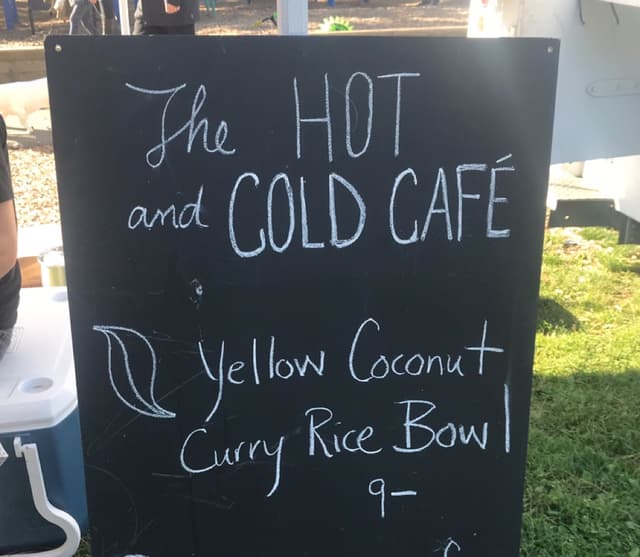 The HOT
and COLD CAFÉ
Yellow Coconut
Curry Rice Bowl
9-